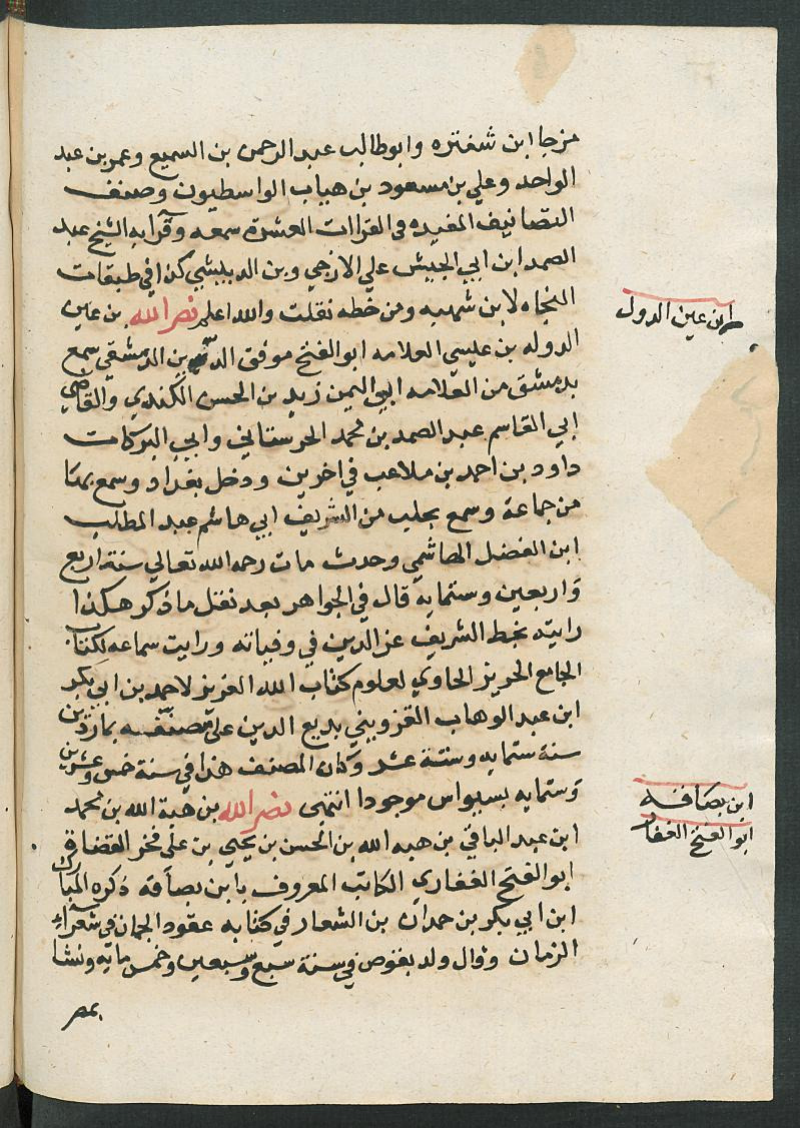 مزجا ابن شغتره وابوطالب عبد الرحمن بن السميع وعمر بن عبد
الواحد وعلي بن مسعود بن هياب الواسطيون وصنف
التصانيف المفيده فى القراات العشرة سمعه وقرا به الشيخ عبد
الصمد ابن ابي الجيش علي الازجي وبن الدبيثي كذا في طبقات
النجاه لابن شهبه ومن خطه نقلت والله اعلم نصر الله بن عين
ابن عين الدول
الدوله بن عليسي العلامه ابو الفتح موفق الدين بن الدمشقي سمع
بدمشق من العلامه ابي اليمن زيد بن الحسن الكندي والقاضي
ابي القاسم عبد الصمد بن محمد الحرستاني وابي البركات
داود بن احمد بن ملاعب في اخرين ودخل بغداد وسمع بها
من جماعة وسمع بحلب من الشريف ابي هاشم عبد المطلب
ابن الفضل الهاشمي وحدث مات رحمه الله تعالي سنة اربع
واربعين وستمايه قال في الجواهر بعد نقل ما ذكر هكذا
رايته بخط الشريف عز الدين في وفياته ورايت سماعه لكتاب
الجامع الحريز الحاوي لعلوم كتاب الله العزيز لاحمد بن ابي بكر
ابن عبد الوهاب القزويني بديع الدين على مصنفه بماردين
سنة ستمايه وستة عشر وكان المصنف هذا في سنة خمس وعشرين
وستمايه بسيواس موجودا انتهى نصر الله بن هبة الله بن محمد
ابن بصاقه
ابو الفتح الغفار
ابن عبد الباقي بن هبه الله بن الحسن بن يحيي بن على فخر القضاة
ابو الفتح الغفاري الكاتب المعروف بابن بصاقه ذكره المبارك
ابن ابي بكر بن حمدان بن الشعار في كتابه عقود الجمان في شعراء
الزمان وقال ولد بقوص في سنة سبع وسبعين وخمس مايه ونشا
بمصر